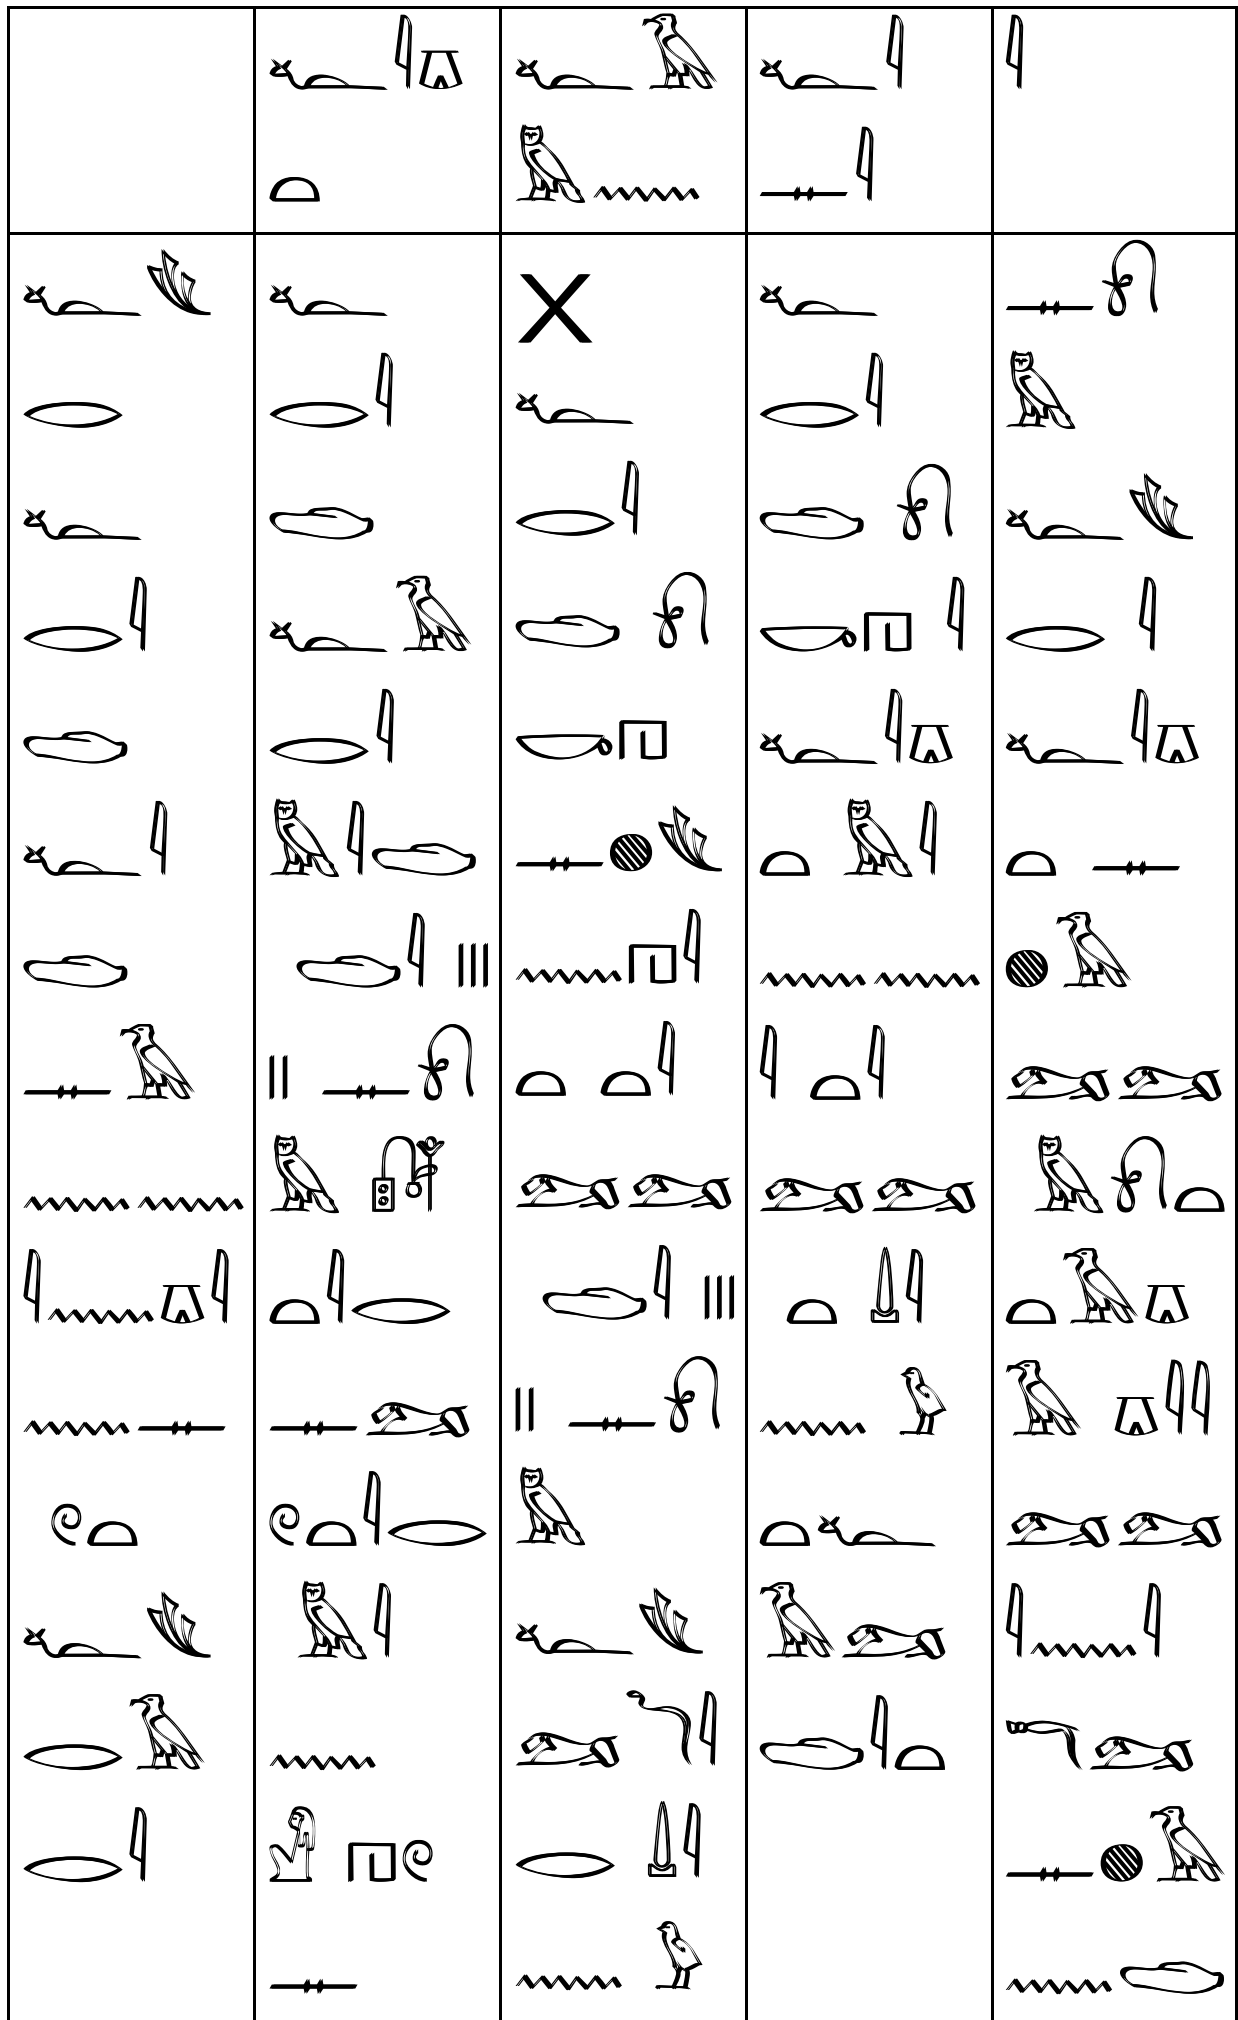 𓆑𓇋𓎼
𓏏
𓆑𓄿
𓅓𓈖
𓆑𓇋
𓊃𓇋
𓇋
𓆑𓄟
𓂋
𓆑
𓂋𓇋
𓂧
𓆑𓇋
𓂧
𓊃𓄿
𓈖𓈖
𓇋𓈖𓎼𓇋
𓈖𓊃
𓏲𓏏
𓆑𓄟
𓂋𓄿
𓂋𓇋
𓆑
𓂋𓇋
𓂧
𓆑𓄿
𓂋𓇋
𓅓𓇋𓂧
𓂧𓇋 𓏼
𓏻 𓊃𓍯
𓅓 𓏞
𓏏𓇋𓂋
𓊃𓃭
𓏲𓏏𓇋𓂋
𓅓𓇋
𓈖
𓁐 𓉔𓏲
𓊃
𓏴
𓆑
𓂋𓇋
𓂧 𓍯
𓎡𓉔
𓊃𓐍𓄟
𓈖𓉔𓇋
𓏏 𓏏𓇋
𓃭𓃭
𓂧𓇋 𓏼
𓏻 𓊃𓍯
𓅓
𓆑𓄟
𓃭𓆓𓇋
𓂋 𓍘𓇋
𓈖 𓅱
𓆑
𓂋𓇋
𓂧 𓍯
𓎡𓉔 𓇋
𓆑𓇋𓎼
𓏏 𓅓𓇋
𓈖𓈖
𓇋 𓏏𓇋
𓃭𓃭
𓏏 𓍘𓇋
𓈖 𓅱
𓏏𓆑
𓄿𓃭
𓂧𓇋𓏏
𓊃𓍯
𓅓
𓆑𓄟
𓂋 𓇋
𓆑𓇋𓎼
𓏏 𓊃
𓐍𓄿
𓃭𓃭
𓅓𓍯𓏏
𓏏𓄿𓎼
𓄿 𓎼𓇋𓇋
𓃭𓃭
𓇋𓈖𓇋
𓃭
𓊃𓐍𓄿
𓈖𓂧